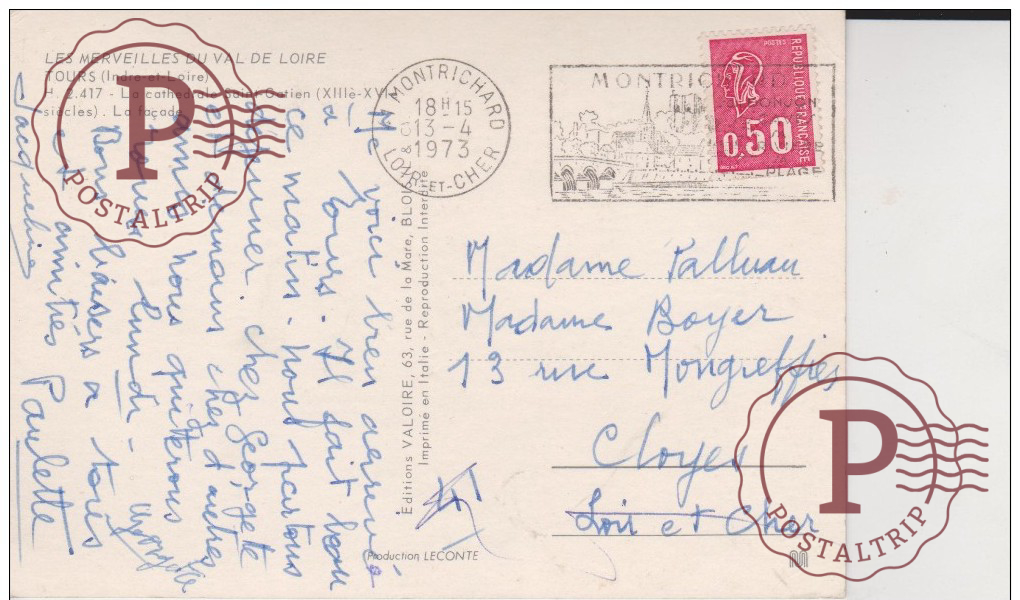 LES MERVEILLES DU VAL DE LOIRE
TOURS (Indre-et-Loire)
H. 2.417 - La cathédrale Saint-Gatien (XIIIè-XVIè
siècles). La façade
Me voici bien arrivée
à Tours. Il fait beau
ce matin. Nous partons
déjeuner chez Georgette
et demain chez d'autres
amis, nous quitterons
Tours lundi.
Bons baisers à tous
et amitiés Paulette
Jacqueline
Editions VALOIRE, 63, rue de la Mare, BLOIS
Imprimé en Italie - Reproduction Interdite
Production LECONTE
41 MONTRICHARD
18H15
13-4
1973
LOIR-ET-CHER
MONTRICHARD
DONJON
PLAGE
POSTES
REPUBLIQUE FRANÇAISE
0,50
Madame Palluau
Madame Boyer
13 rue Mongreffiés
Cloyes
Loir et Cher
P
POSTALTRIP
P
POSTALTRIP